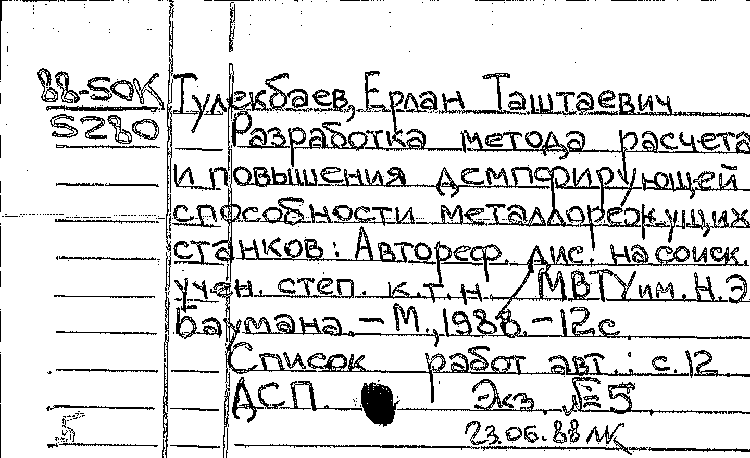 88-50К Тулекбаев, Ерлан Таштаевич
5280 Разработка метода расчета
и повышения демпфирующей
способности металлорежущих
станков: Автореф. дис. на соиск.
учен. степ. к.т.н. МВТУ им. Н.Э
Баумана. – М., 1988. – 12 с.
Список работ авт.: с.12
ДСП. Экз. №5.
Б 23.06.88 МК